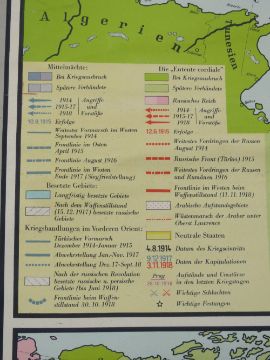 Algerien
Tunesien
Mittelmächte:
Bei Kriegsausbruch
Spätere Verbündete
1914
1915-17
1918
Angriffe
und
Vorstöße
Erfolge
Weitestes Vormarsch im Westen
September 1914
Frontlinie im Osten
April 1915
Frontlinie August 1916
Frontlinie im Westen
Ende 1917 (Siegfriedstellung)
Besetzte Gebiete:
Langfristig besetzte Gebiete
Nach dem Waffenstillstand
(15.12.1917) besetzte russische
Gebiete
Kriegshandlungen im Vorderen Orient:
Türkischer Vormarsch
Dezember 1914-Januar 1915
Abwehrstellung Jan.-Nov. 1917
Abwehrstellung Dez. 17-Sept. 18
Nach der russischen Revolution
besetzte russische u. persische
Gebiete (bis Juni 1918)
Frontlinie beim Waffen-
stillstand 30.10.1918
Die „Entente cordiale"
Bei Kriegsausbruch
Spätere Verbündete
Russisches Reich
1914
1915-17
1918
Angriffe
und
Vorstöße
12.6.1915 Erfolge
Weitestes Vordringen der Russen
August 1914
Russische Front (Türkei) 1915
Weitestes Vordringen der Russen
und Rumänen 1916
Frontlinie im Westen beim
Waffenstillstand (11.11.1918)
Arabische Aufstandsgebiete
Wüstenmarsch der Araber unter
Oberst Lawrence
Neutrale Staaten
4.8.1914 Daten des Kriegseintritts
9.12.1917
3.11.1918
Daten der Kapitulationen
Prag
Aufstände und Unruhen
in den letzten Kriegstagen
Wichtige Schlachten
Wichtige Festungen